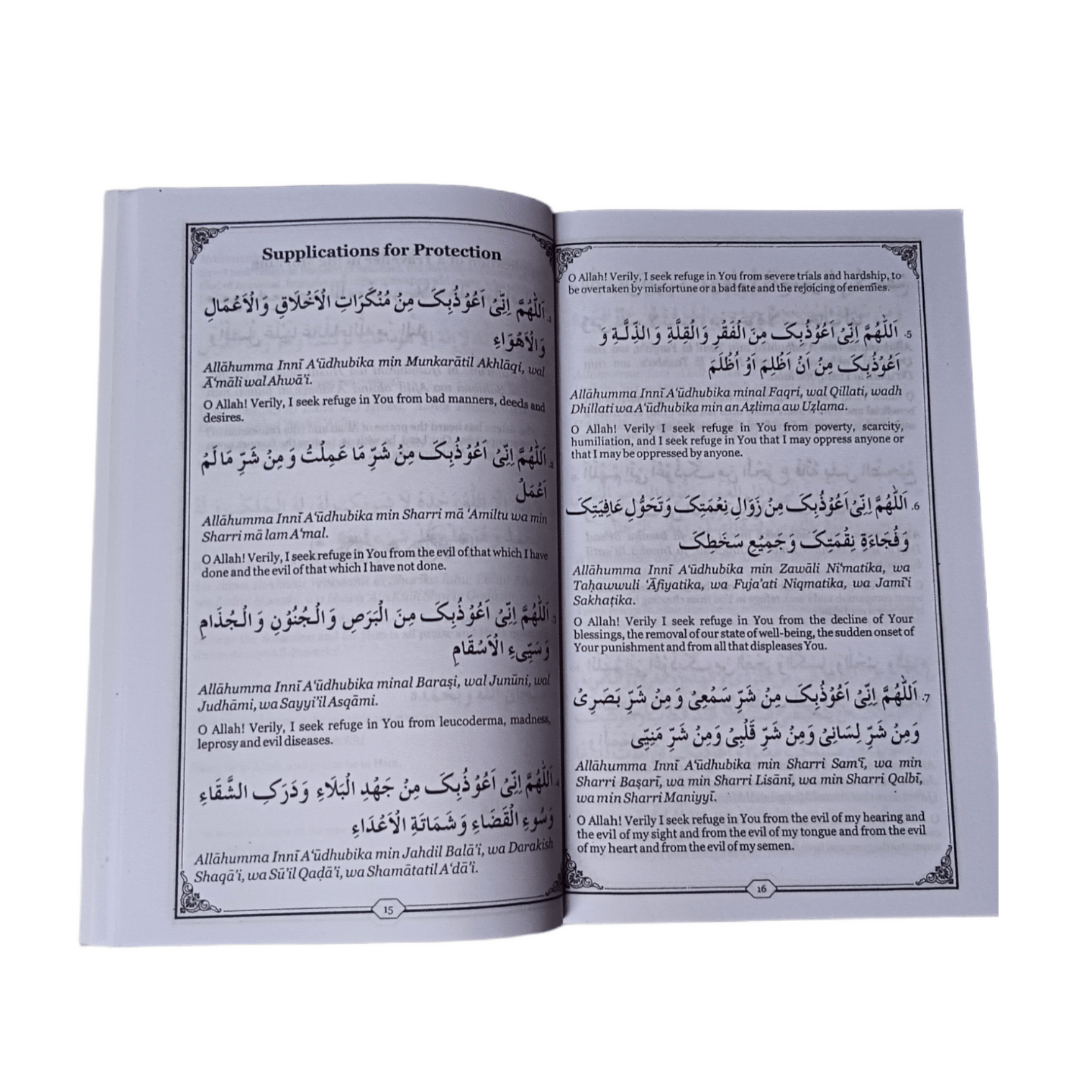 Supplications for Protection
اَللّٰهُمَّ اِنِّىْ اَعُوْذُبِكَ مِنْ مُنْكَرَاتِ الْاَخْلَاقِ وَالْاَعْمَالِ
وَالْاَهْوَاءِ
Allāhumma Innī A‘ūdhubika min Munkarātil Akhlāqi, wal
Ā‘māli wal Ahwā’i.
O Allah! Verily, I seek refuge in You from bad manners, deeds and
desires.
اَللّٰهُمَّ اِنِّىْ اَعُوْذُبِكَ مِنْ شَرِّ مَا عَمِلْتُ وَمِنْ شَرِّ مَا لَمْ
اَعْمَلْ
Allāhumma Innī A‘ūdhubika min Sharri mā ‘Amiltu wa min
Sharri mā lam A‘mal.
O Allah! Verily, I seek refuge in You from the evil of that which I have
done and the evil of that which I have not done.
اَللّٰهُمَّ اِنِّىْ اَعُوْذُبِكَ مِنَ الْبَرَصِ وَالْجُنُوْنِ وَالْجُذَامِ
وَسَيِّىءِ الْاَسْقَامِ
Allāhumma Innī A‘ūdhubika minal Baraṣi, wal Junūni, wal
Judhāmi, wa Sayyi’il Asqāmi.
O Allah! Verily, I seek refuge in You from leucoderma, madness,
leprosy and evil diseases.
اَللّٰهُمَّ اِنِّىْ اَعُوْذُبِكَ مِنْ جَهْدِ الْبَلَاءِ وَدَرَكِ الشَّقَاءِ
وَسُوءِ الْقَضَاءِ وَشَمَاتَةِ الْاَعْدَاءِ
Allāhumma Innī A‘ūdhubika min Jahdil Balā’i, wa Darakish
Shaqā’i, wa Sū’il Qaḍā’i, wa Shamātatil A‘dā’i.
15
O Allah! Verily, I seek refuge in You from severe trials and hardship, to
be overtaken by misfortune or a bad fate and the rejoicing of enemies.
5. اَللّٰهُمَّ اِنِّىْ اَعُوْذُبِكَ مِنَ الْفَقْرِ وَالْقِلَّةِ وَالذِّلَّةِ وَ
اَعُوْذُبِكَ مِنْ اَنْ اَظْلِمَ اَوْ اُظْلَمَ
Allāhumma Innī A‘ūdhubika minal Faqri, wal Qillati, wadh
Dhillati wa A‘ūdhubika min an Aẓlima aw Uẓlama.
O Allah! Verily I seek refuge in You from poverty, scarcity,
humiliation, and I seek refuge in You that I may oppress anyone or
that I may be oppressed by anyone.
6. اَللّٰهُمَّ اِنِّىْ اَعُوْذُبِكَ مِنْ زَوَالِ نِعْمَتِكَ وَتَحَوُّلِ عَافِيَتِكَ
وَفُجَاءَةِ نِقْمَتِكَ وَجَمِيْعِ سَخَطِكَ
Allāhumma Innī A‘ūdhubika min Zawāli Ni‘matika, wa
Taḥawwuli ‘Āfiyatika, wa Fuja’ati Niqmatika, wa Jamī‘i
Sakhaṭika.
O Allah! Verily I seek refuge in You from the decline of Your
blessings, the removal of our state of well-being, the sudden onset of
Your punishment and from all that displeases You.
7. اَللّٰهُمَّ اِنِّىْ اَعُوْذُبِكَ مِنْ شَرِّ سَمْعِىْ وَمِنْ شَرِّ بَصَرِىْ
وَمِنْ شَرِّ لِسَانِىْ وَمِنْ شَرِّ قَلْبِىْ وَمِنْ شَرِّ مَنِيِّى
Allāhumma Innī A‘ūdhubika min Sharri Sam‘ī, wa min
Sharri Baṣarī, wa min Sharri Lisānī, wa min Sharri Qalbī,
wa min Sharri Maniyyī.
O Allah! Verily I seek refuge in You from the evil of my hearing and
the evil of my sight and from the evil of my tongue and from the evil
of my heart and from the evil of my semen.
16